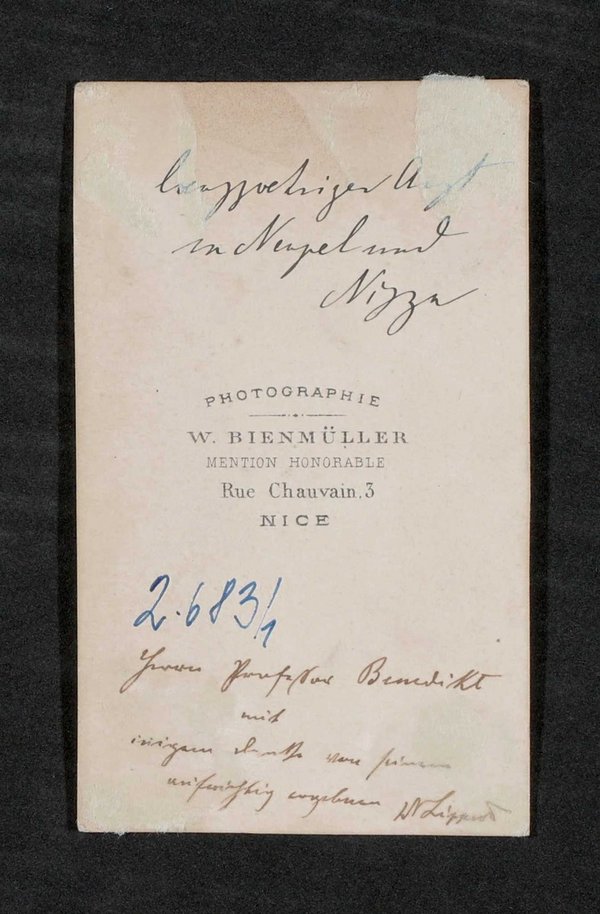 langjoehriger Arzt
in Neapel und
Nizza
PHOTOGRAPHIE
W. BIENMÜLLER
MENTION HONORABLE
Rue Chauvain, 3
NICE
2.683/1
Herrn Professor Benedikt
mit
innigem Danke von seinem
aufrichtig ergebenen Dr Lippert